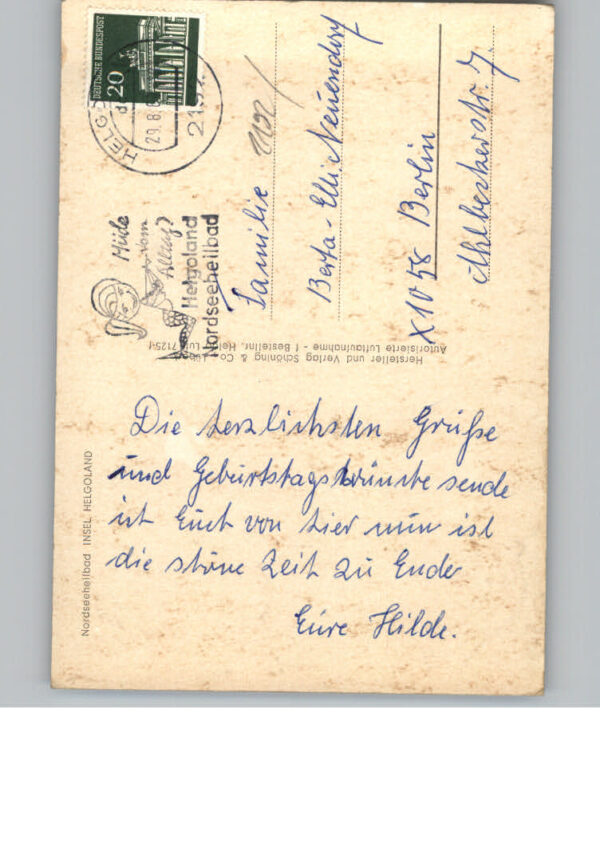 DEUTSCHE BUNDESPOST
20
HELGO
29.8.
2192
Müde
vom
Alltag?
Helgoland
Nordseeheilbad
1192
Familie
Berta-Elli Neuendorf
X1058 Berlin
Hersteller und Verlag Schöning & Co
Autorisierte Luftaufnahme - f Bestellnr. Hel
Nordseeheilbad INSEL HELGOLAND
Die herzlichsten Grüße
und Geburtstagswünsche sende
ich Euch von hier nun ist
die schöne Zeit zu Ende
Eure Hilde.